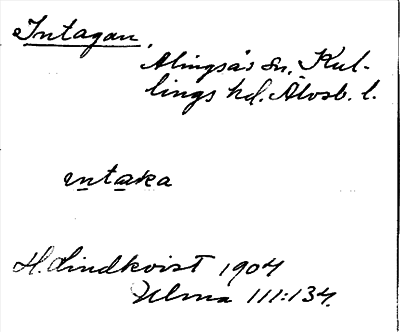 Intagan,
Alingsås sn. Kul-
lings hd. Älvsb. l.
intaka
H. Lindkvist 1904
Ulma 111:134.